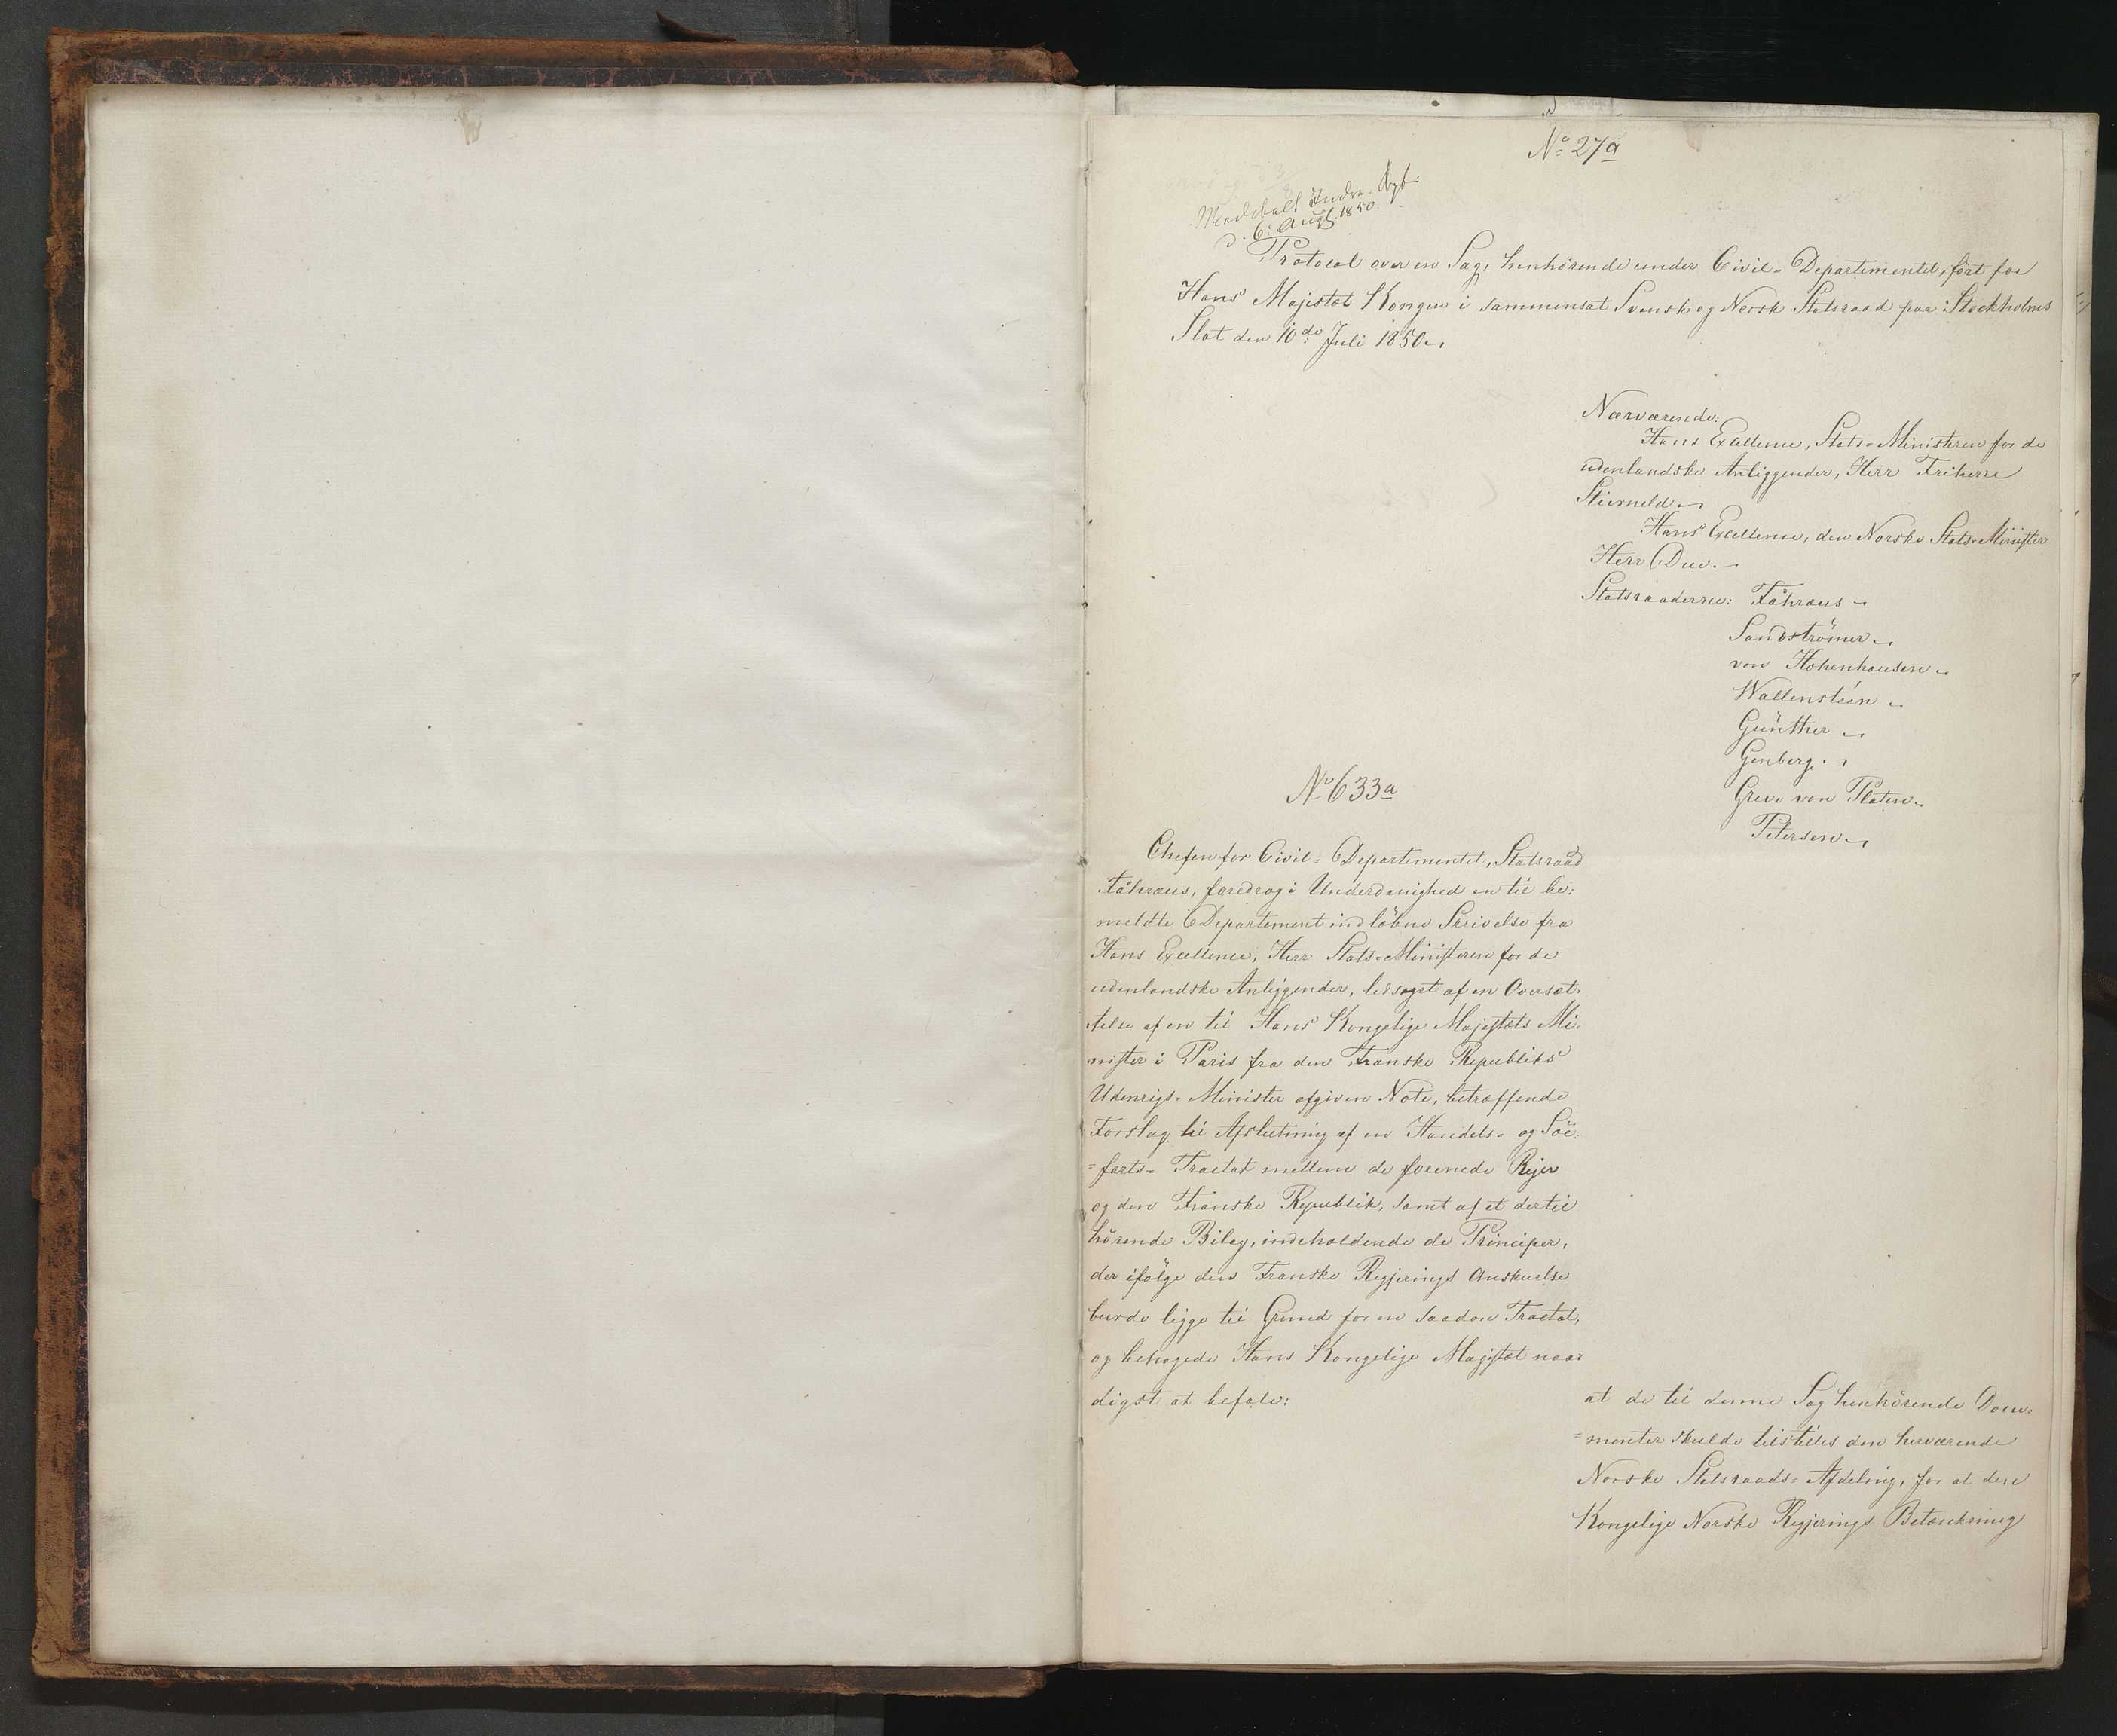 No 27a
Meddeelt Indre
d. 6. Augt. 1850.
Protocol over en Sag, henhörende under Civil-Departementet, fört for
Hans Majestæt Kongen i sammensat Svensk og Norsk Statsraad paa Stockholms
Slot den 10de Juli 1850.
Nærværende:
Hans Excellence, Stats-Ministeren for de
udenlandske Anliggender, Herr Friherre
Stierneld.
Hans Excellence, den Norske Stats-Minister
Herr Due.
Statsraaderne: Fåhræus
Sandströmer.
von Hohenhausen.
Wallensteén.
Günther.
Genberg.
Greve von Platen.
Petersen.
No 633a
Chefen for Civil-Departementet, Statsraad
Fåhræus, foredrog i Underdanighed en til be:
meldte Departement indløbne Skrivelse fra
Hans Excellence, Herr Stats-Ministeren for de
udenlandske Anliggender, ledsaget af en Oversæt-
telse af en til Hans Kongelige Majestæts Mi-
nister i Paris fra den Franske Republiks
Udenrigs-Minister afgiven Note, betræffende
Forslag til Afslutning af en Handels- og Söe-
=farts-Tractat mellem de forenede Riger
og den Franske Republik, samt af et dertil
hörende Bilag, indeholdende de Principer,
der ifølge den Franske Regjerings Anskuelse
burde ligge til Grund for en saadan Tractat,
og behagede Hans Kongelige Majestæt naa:
digst at befale:
at de til denne Sag henhörende Docu:
=menter skulde tilstilles den herværende
Norske Statsraads-Afdeling, for at den
Kongelige Norske Regjerings Betænkning